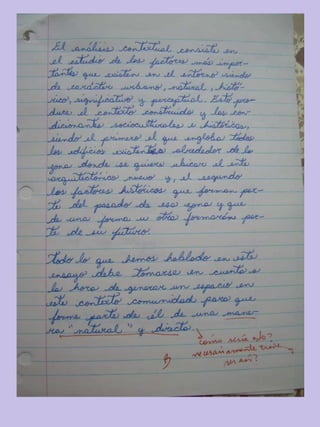 El análisis contextual consiste en
el estudio de los factores más impor-
tantes que existen en el entorno siendo
de carácter urbano, natural, histó-
rico, significativo y perceptual. Esto pro-
duce el contexto construido y las con-
dicionantes socioculturales e históricas,
siendo el primero el que engloba todos
los edificios existentes alrededor de la
zona donde se quiere ubicar el ente
arquitectónico nuevo y, el segundo
los factores históricos que forman par-
te del pasado de esa zona y que
de una forma u otra formarán par-
te de su futuro.
Todo lo que hemos hablado en este
ensayo debe tomarse en cuenta a
la hora de generar un espacio en
este contexto comunidad para que
forme parte de él de una mane-
ra "natural" y directa.
¿cómo sería eso?
necesariamente tiene
ser así?